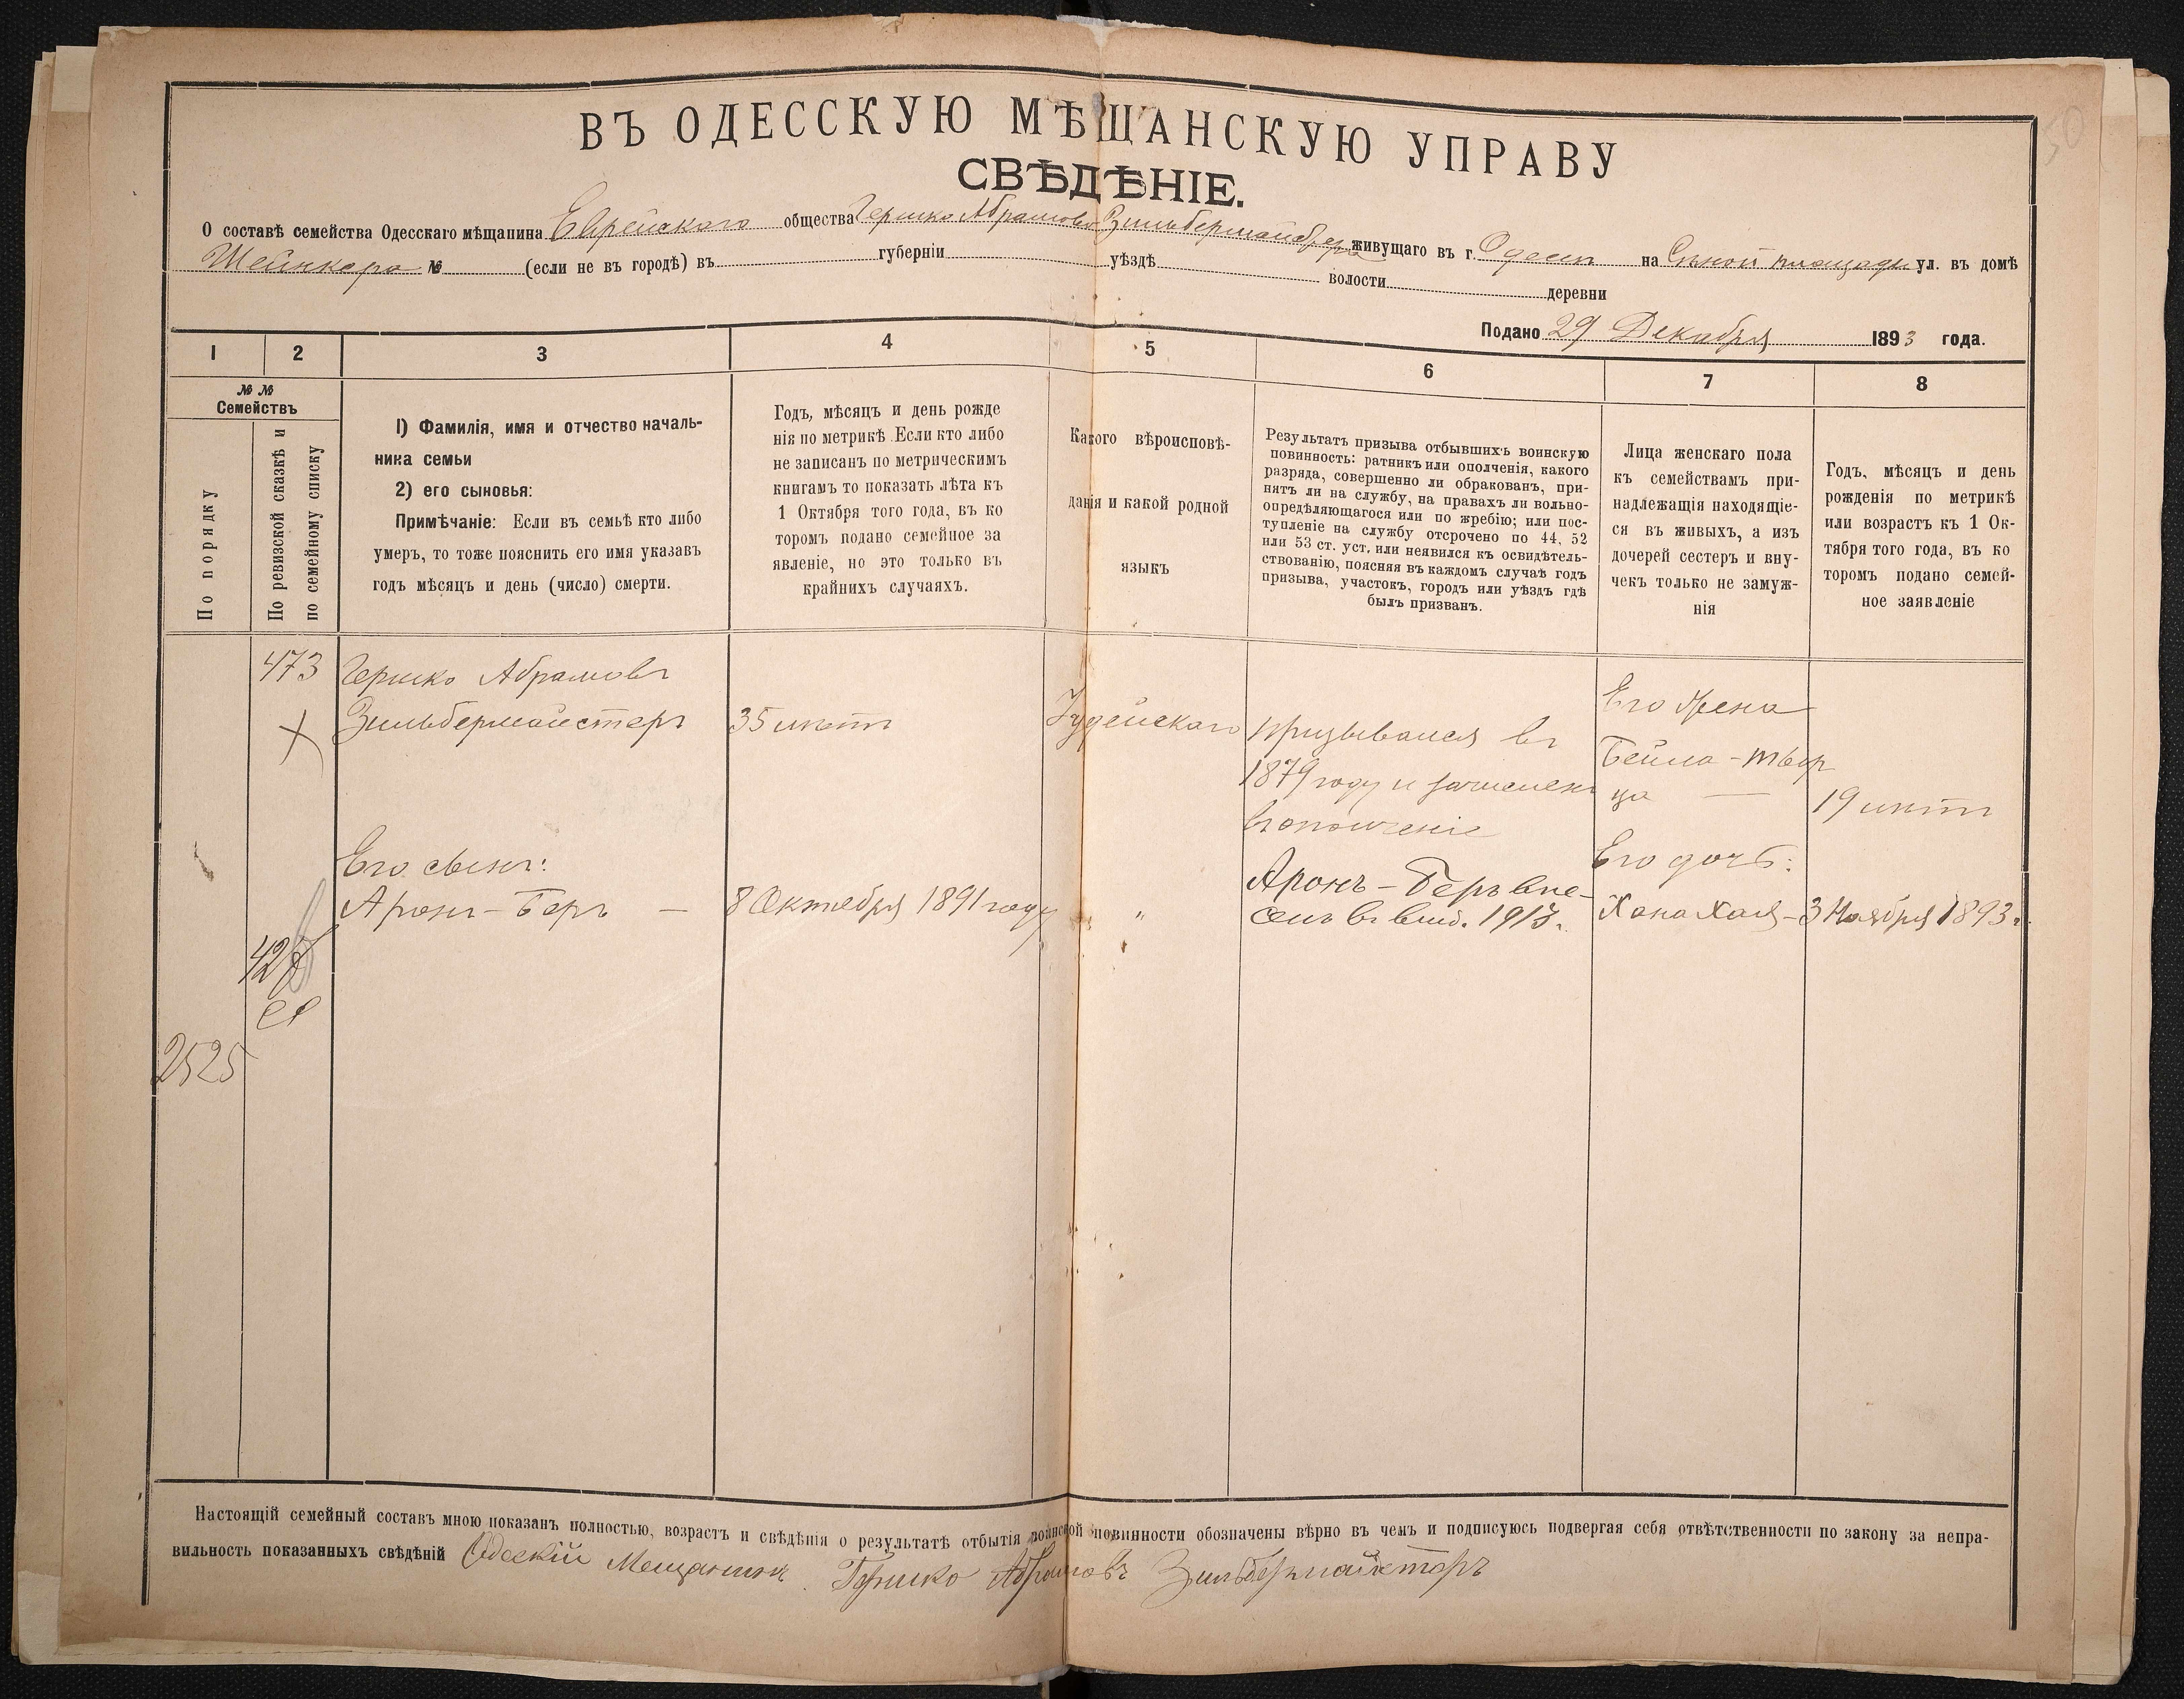 50
ВЪ ОДЕССКУЮ МѢЩАНСКУЮ УПРАВУ
СВѢДѢНІЕ.
О составѣ семейства Одесскаго мѣщанина Еврейскаго общества Гершко Абрамова живущаго въ г. Одессѣ на Сѣнной площади ул. въ домѣ
Шейнкера № (если не въ городѣ) въ губерніи уѣздѣ волости деревни
Подано 29 Декабря 1893 года.
1 2 3 4 5 6 7 8
№ №
Семействъ
По порядку
По ревизской сказкѣ и
по семейному списку
1) Фамилія, имя и отчество началь-
ника семьи
2) его сыновья:
Примѣчаніе: Если въ семьѣ кто либо
умеръ, то тоже пояснить его имя указавъ
годъ мѣсяцъ и день (число) смерти.
Годъ, мѣсяцъ и день рожде
нія по метрикѣ. Если кто либо
не записанъ по метрическимъ
книгамъ то показать лѣта къ
1 Октября того года, въ ко
торомъ подано семейное за
явленіе, но это только въ
крайнихъ случаяхъ.
Какого вѣроисповѣ-
данія и какой родной
языкъ
Результатъ призыва отбывшихъ воинскую
повинность: ратникъ или ополченія, какого
разряда, совершенно ли обракованъ, при-
нятъ ли на службу, на правахъ ли вольно-
опредѣляющагося или по жребію; или пос-
тупленіе на службу отсрочено по 44, 52
или 53 ст. уст. или неявился къ освидѣтель-
ствованію, поясняя въ каждомъ случаѣ годъ
призыва, участокъ, городъ или уѣздъ гдѣ
былъ призванъ.
Лица женскаго пола
къ семействамъ при-
надлежащія находящіе-
ся въ живыхъ, а изъ
дочерей сестеръ и вну-
чекъ только не замуж-
нія
Годъ, мѣсяцъ и день
рожденія по метрикѣ
или возрастъ къ 1 Ок-
тября того года, въ ко
торомъ подано семей-
ное заявленіе
473
Гершко Абрамовъ
Зильбермайстеръ
35 лѣтъ
Іудейскаго
призывался въ
1879 году и зачисленъ
въ ополченіе
Его жена
Бейла-Твер
ца —
19 лѣтъ
Его сынъ:
Аронъ-Беръ —
8 Октября 1891 году
"
Аронъ-Беръ вне-
сенъ въ 1913.
Его дочь:
Хана Хая –
3 Ноября 1893 г.
2525
Настоящій семейный составъ мною показанъ полностью, возрастъ и свѣдѣнія о результатѣ отбытія воинской повинности обозначены вѣрно въ чемъ и подписуюсь подвергая себя отвѣтственности по закону за непра-
вильность показанныхъ свѣдѣній Одескій Мещанинъ Гершко Абрамовъ Зильбермайстеръ